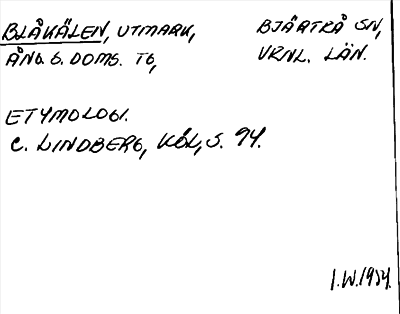 BLÅKÄLEN, UTMARK, BJÄRTRÅ SN,
ÅNG. S. DOMS. TG, VRNL. LÄN.
ETYMOLOGI.
C. LINDBERG, KÖL, S. 94.
I.W.1954.